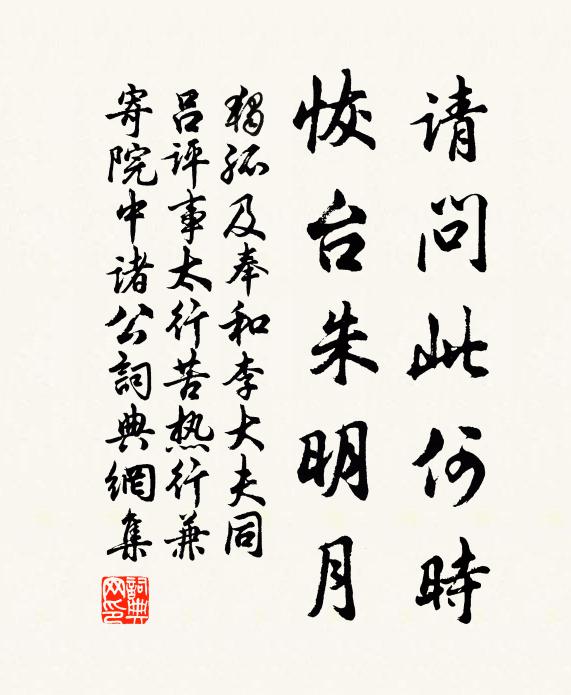 请问此何時
恢台朱明月
獨孤及奉和李大夫同
吕评事太行苦热行兼
寄院中诸公詞典網集
詞典
网印